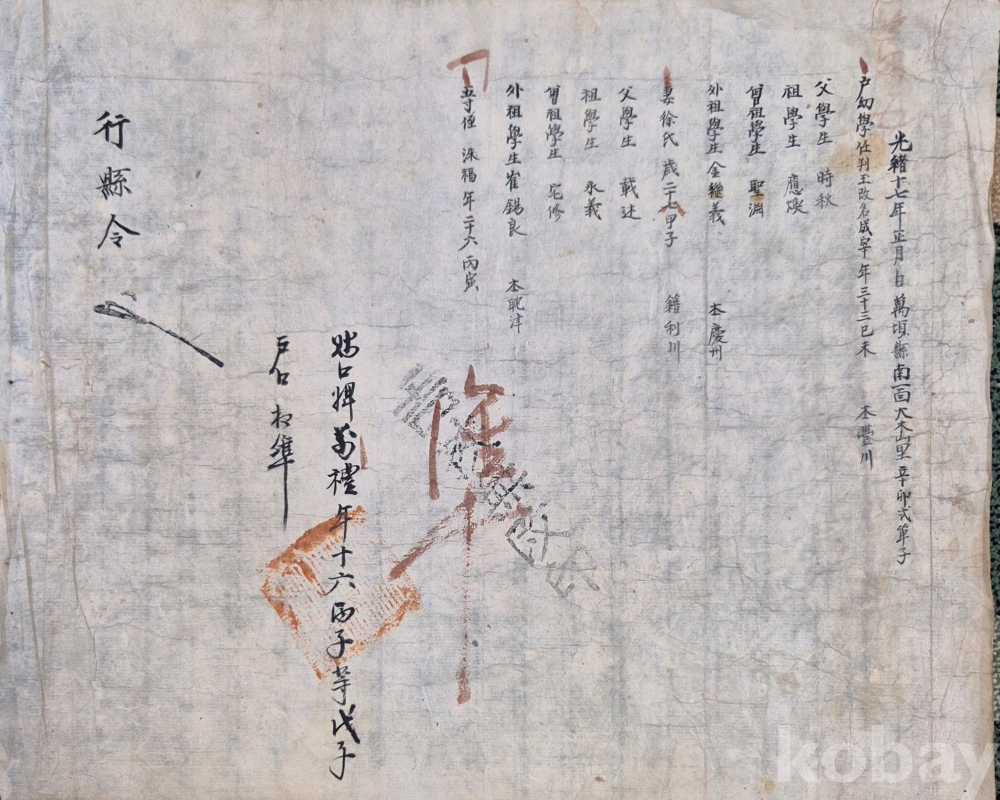 光緖十七年正月 日 萬頃縣南一面大木山里辛卯式單子
戶幼學任判玉改名成宰年三十三己未 本豊川
父學生 時秋
祖學生 應煥
曾祖學生 聖淵
外祖學生金繼義 本慶州
妻徐氏歲二十七甲子 籍利川
父學生 載述
祖學生 永義
曾祖學生 宅修
外祖學生崔錫良 本耽津
五寸侄 洙楊年二十六丙寅
賤口婢萬禮年十六丙子等戊子
戶口相準
準
行縣令
kobay